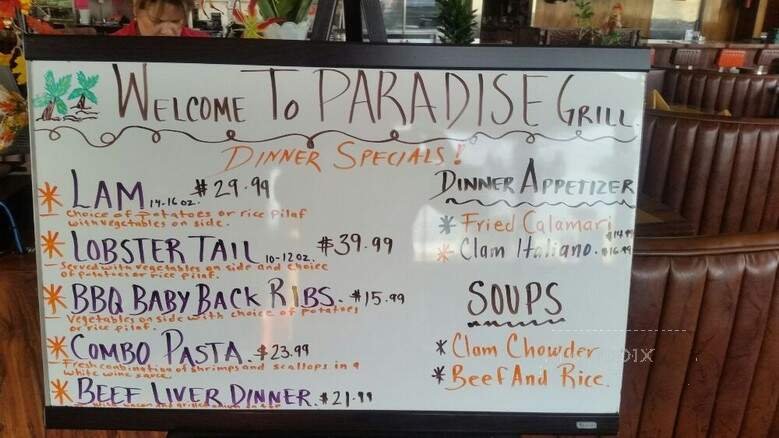 WELCOME TO PARADISE GRILL
DINNER SPECIALS!
LAM 14-16oz. $29.99
choice of Potatoes or rice pilaf
with vegetables on side.
LOBSTER TAIL 10-12oz. $39.99
Served with vegetables on side and choice
of potatoes or rice pilaf.
BBQ BABY BACK RIBS. $15.99
Vegetables on side with choice of potatoes
or rice pilaf.
COMBO PASTA. $23.99
Fresh combination of shrimps and scallops in a
white wine sauce
BEEF LIVER DINNER. $21.99
with bacon and grilled onion
DINNER APPETIZER
Fried Calamari $14.99
Clam Italiano. $16.99
SOUPS
Clam Chowder
Beef And Rice.